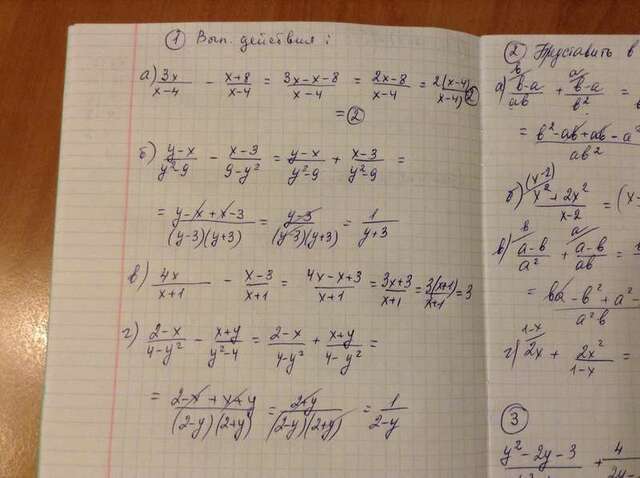 ① Вып. действия:
а) 3x/(x-4) - (x+8)/(x-4) = (3x-x-8)/(x-4) = (2x-8)/(x-4) = 2(x-4)/(x-4) 2
= 2
б) (y-x)/(y²-9) - (x-3)/(9-y²) = (y-x)/(y²-9) + (x-3)/(y²-9) =
= (y-x+x-3)/((y-3)(y+3)) = (y-3)/((y-3)(y+3)) = 1/(y+3)
в) 4x/(x+1) - (x-3)/(x+1) = (4x-x+3)/(x+1) = (3x+3)/(x+1) = 3(x+1)/(x+1) = 3
г) (2-x)/(4-y²) - (x+y)/(y²-4) = (2-x)/(4-y²) + (x+y)/(4-y²) =
= (2-x+x+y)/((2-y)(2+y)) = (2+y)/((2-y)(2+y)) = 1/(2-y)
② Представить в
а) в/ (в-а)/ав + а/ (в-а)/в² =
= (в²-ав+ав-а²)/ав²
б) (x-2)/ x² + 2x²/(x-2) = (x-
в) в/ (а-в)/а² + а/ (а-в)/ав =
= (ва-в²+а²-)/а²в
г) 1-x/ 2x + 2x²/(1-x) =
③
y²-2y-3 + 4/2y-